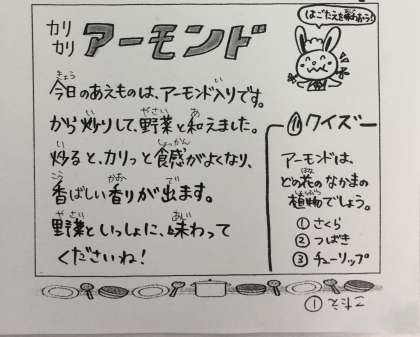 カリ
カリ
アーモンド
はごたえを味わおう!
きょう
今日のあえものは、アーモンド入りです。
から炒りして、野菜と和えました。
炒ると、カリっと食感がよくなり、
香ばしい香りが出ます。
野菜といっしょに、味わって
くださいね!
クイズ
アーモンドは、
どの花のなかまの
植物でしょう。
①さくら
②つばき
③チューリップ
こたえ ①